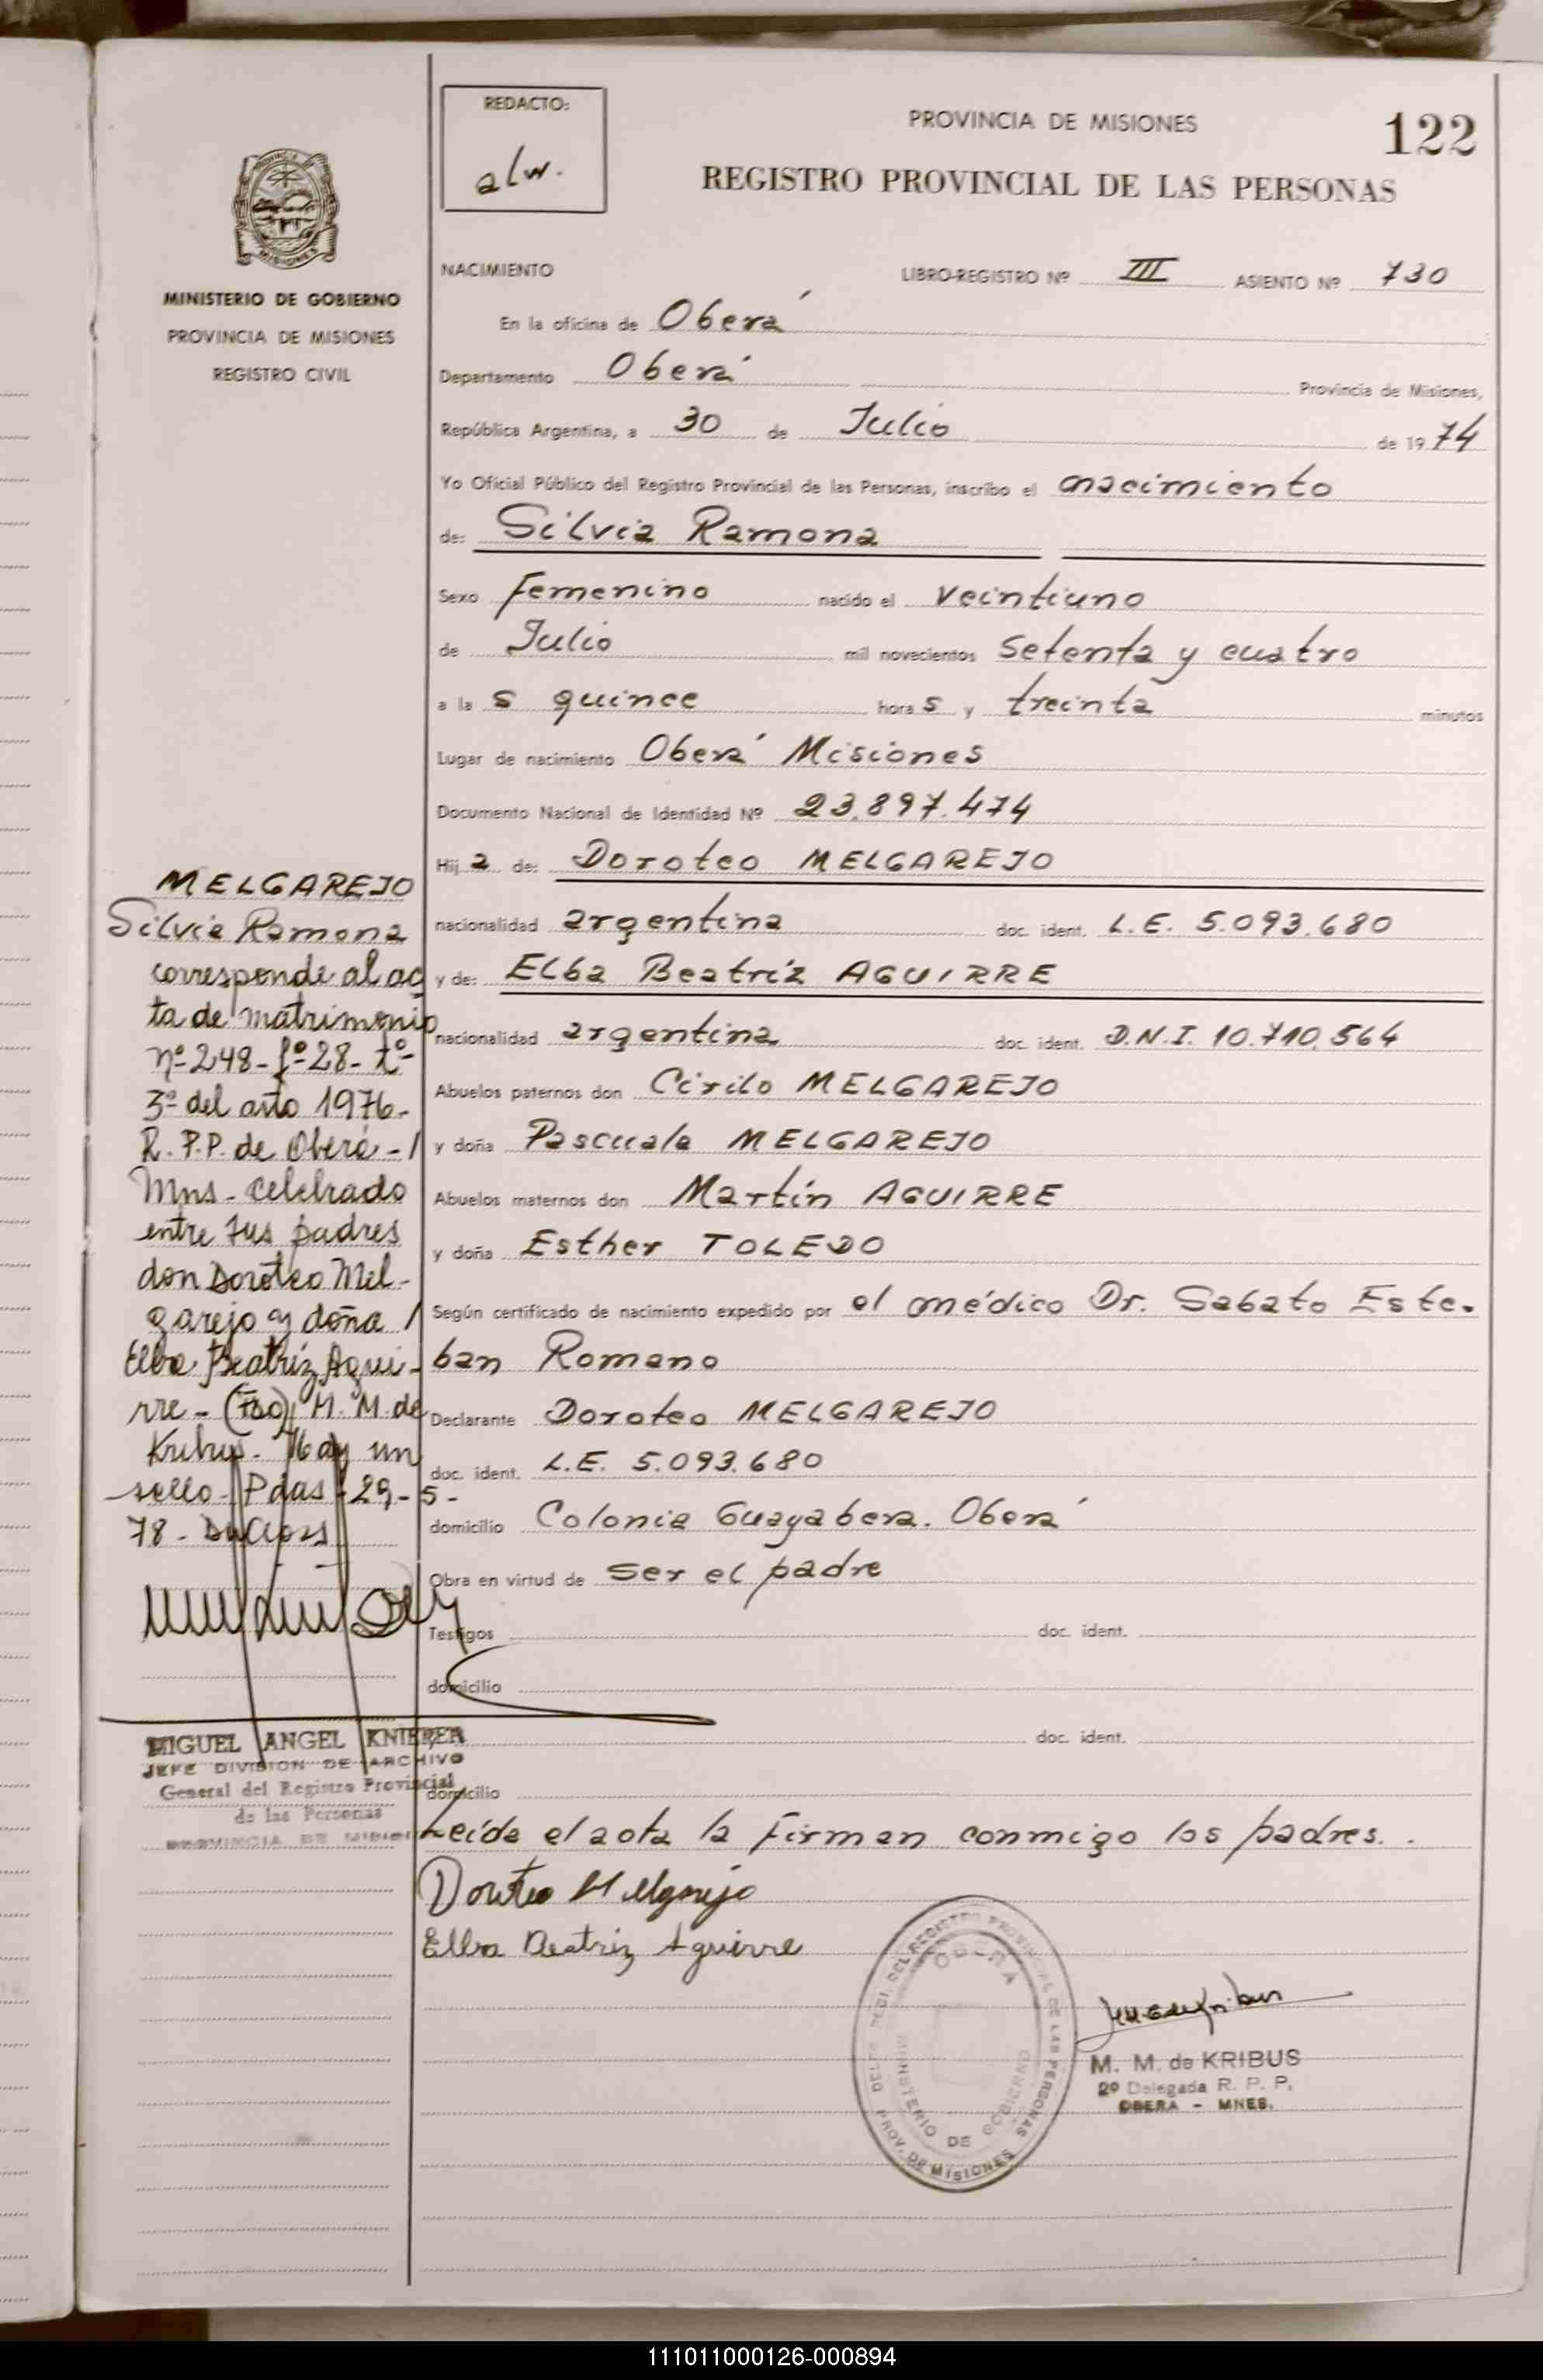 REDACTO:
alw.
PROVINCIA DE MISIONES
122
REGISTRO PROVINCIAL DE LAS PERSONAS
MINISTERIO DE GOBIERNO
PROVINCIA DE MISIONES
REGISTRO CIVIL
NACIMIENTO LIBRO-REGISTRO Nº III ASIENTO Nº 730
En la oficina de Oberá
Departamento Oberá Provincia de Misiones,
República Argentina, a 30 de Julio de 1974
Yo Oficial Público del Registro Provincial de las Personas, inscribo el nacimiento
de: Silvia Ramona
Sexo Femenino nacido el veintiuno
de Julio mil novecientos setenta y cuatro
a las quince horas y treinta minutos
Lugar de nacimiento Oberá Misiones
Documento Nacional de Identidad Nº 23.897.474
Hija de: Doroteo MELGAREJO
nacionalidad argentina doc. ident. L.E. 5.093.680
y de: Elba Beatriz AGUIRRE
nacionalidad argentina doc. ident. D.N.I. 10.710.564
Abuelos paternos don Cirilo MELGAREJO
y doña Pascuala MELGAREJO
Abuelos maternos don Martín AGUIRRE
y doña Esther TOLEDO
Según certificado de nacimiento expedido por el médico Dr. Sabato Este-
ban Romano
Declarante Doroteo MELGAREJO
doc. ident. L.E. 5.093.680
domicilio Colonia Guayabera. Oberá
Obra en virtud de ser el padre
Testigos doc. ident.
domicilio
doc. ident.
domicilio
Leída el acta la Firman conmigo los padres.
Doroteo Melgarejo
Elba Beatriz Aguirre
MELGAREJO
Silvia Ramona
corresponde al ac
ta de matrimonio
nº 248 - fº 28 - tº
3º del año 1976.
R.P.P. de Oberá - /
Mns - celebrado
entre sus padres
don Doroteo Mel-
garejo y doña /
Elba Beatriz Agui-
rre - (Fdo) M. M. de
Kribus. Hay un
sello - Pdas - 29 - 5 -
78 -
MIGUEL ANGEL KNIERER
JEFE DIVISION DE ARCHIVO
General del Registro Provincial
de las Personas
PROVINCIA DE MISIONES
DEL REGISTRO PROVINCIAL DE LAS PERSONAS
OBERA
MINISTERIO DE GOBIERNO
PROV. DE MISIONES
M. M. de KRIBUS
2º Delegada R. P. P.
OBERA - MNES.
111011000126-000894